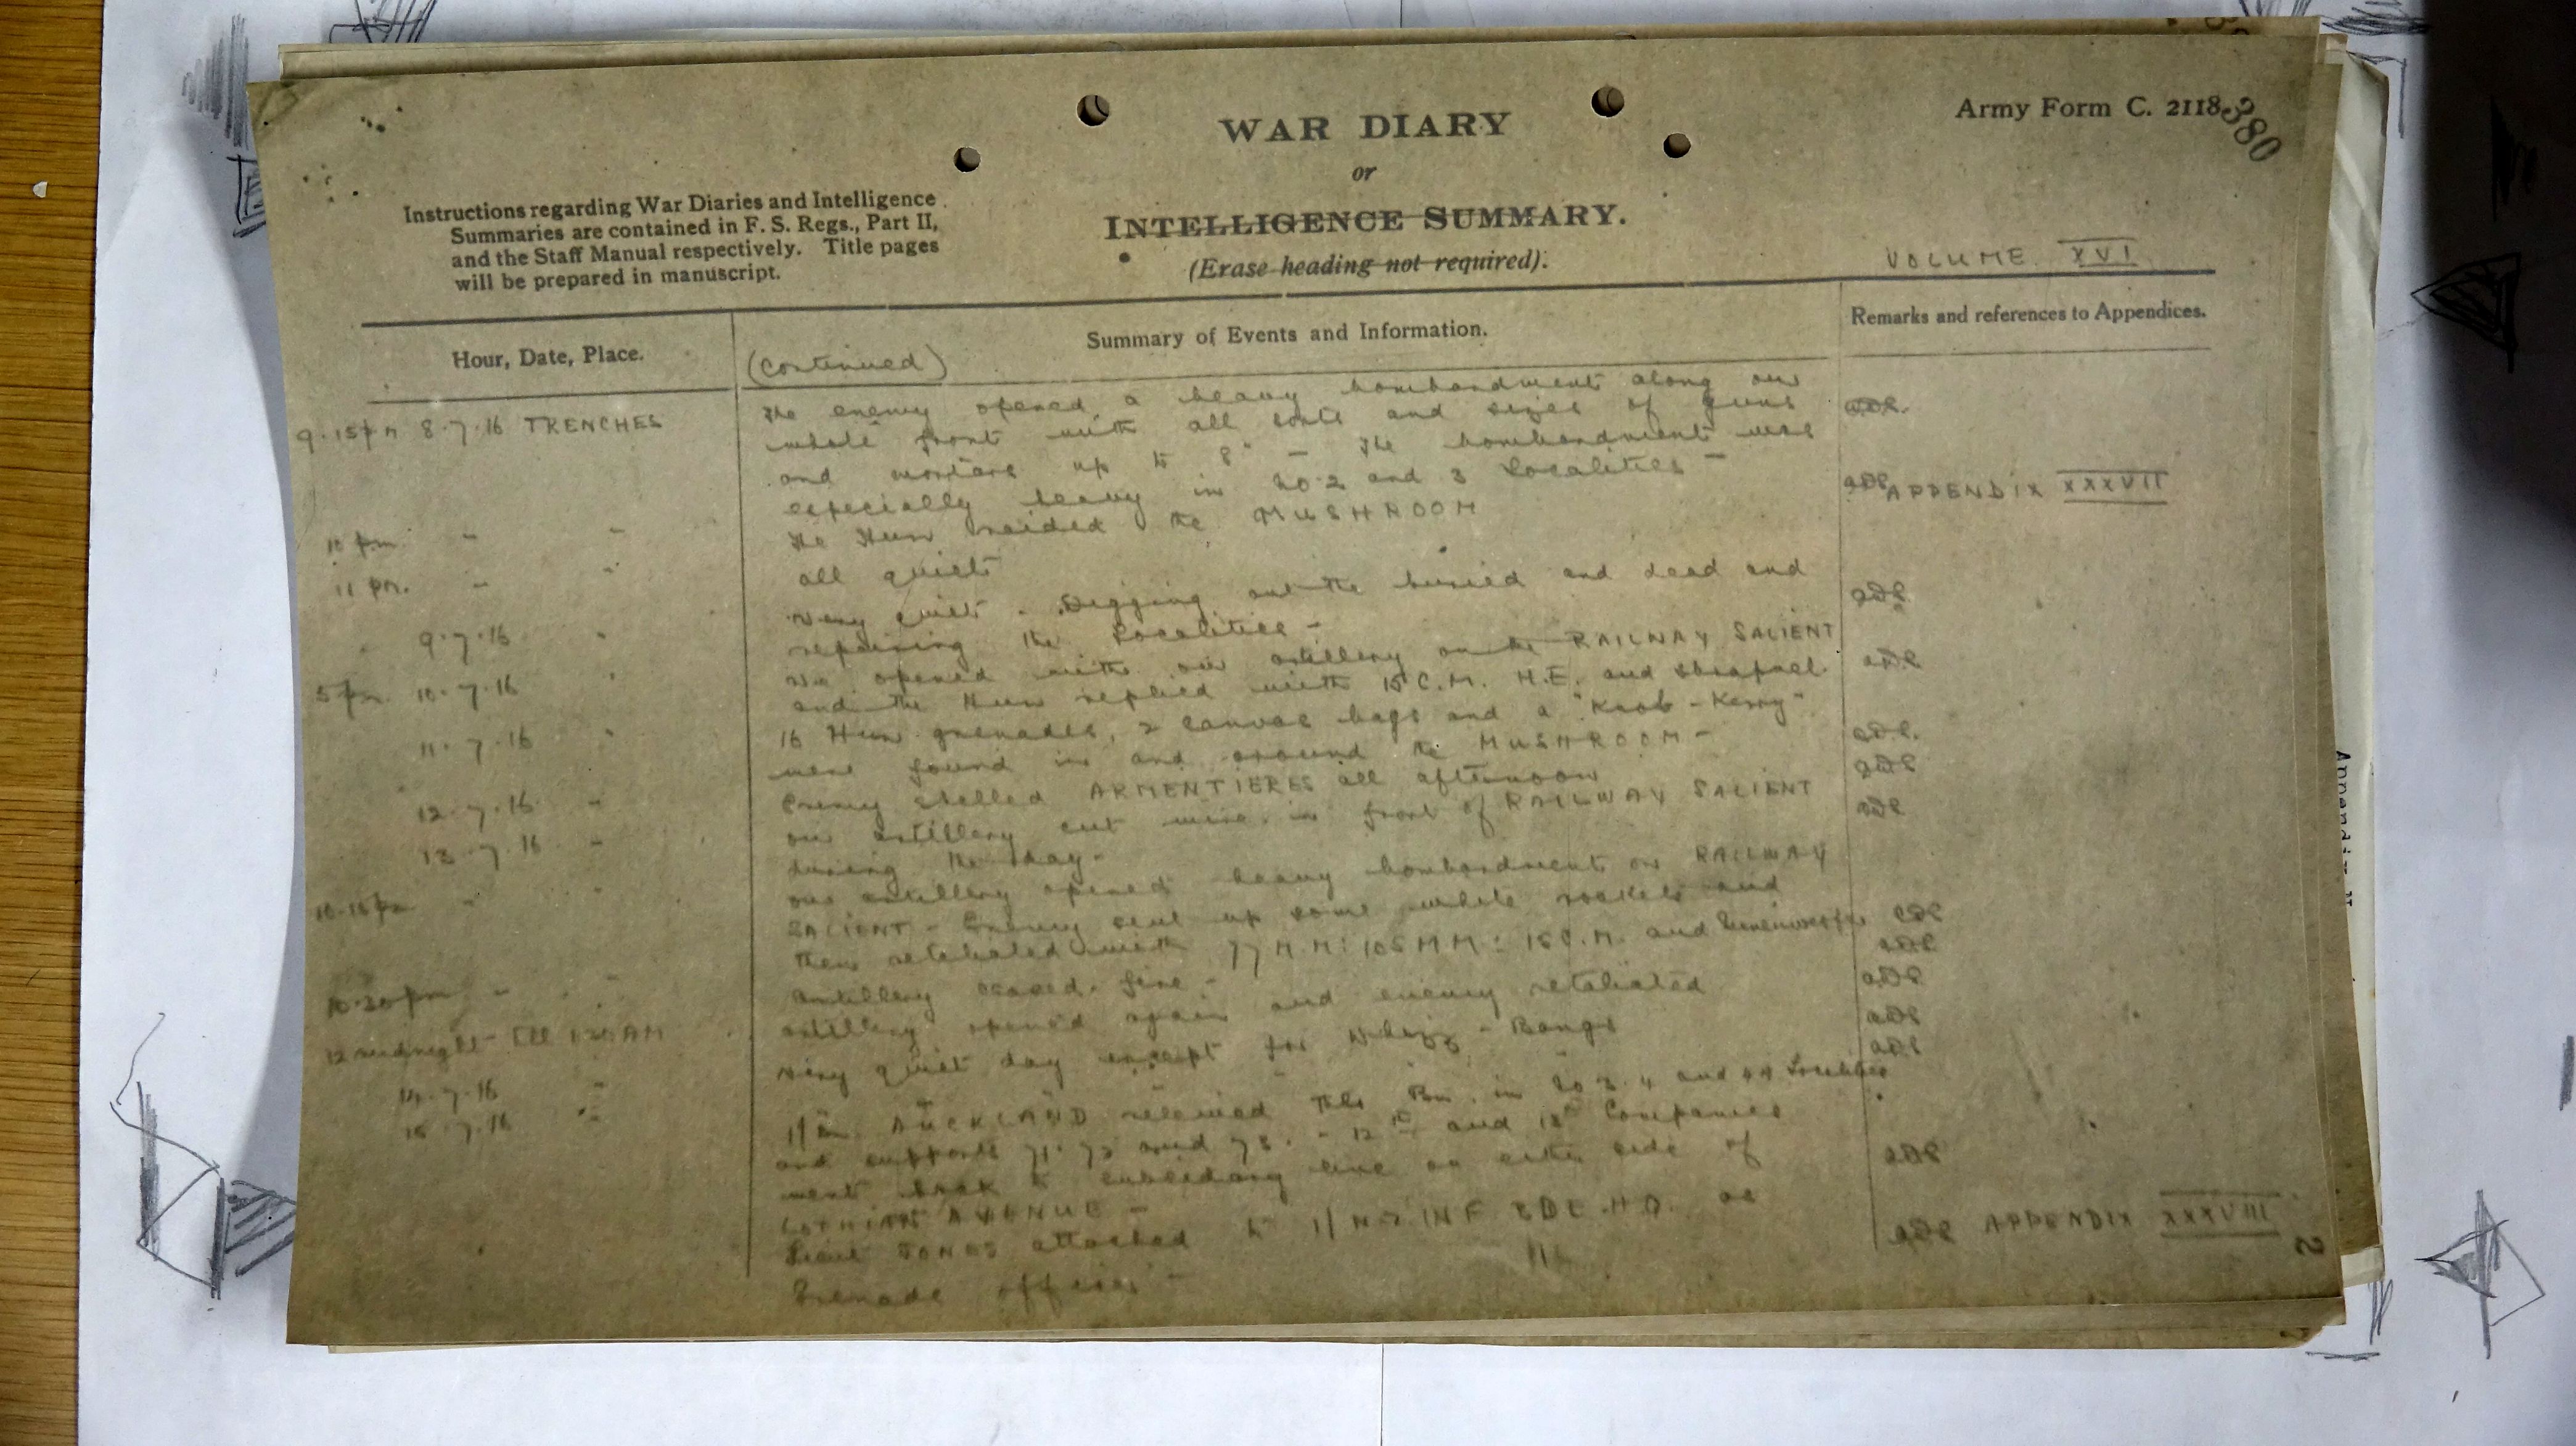 Army Form C. 2118.
380
WAR DIARY
or
INTELLIGENCE SUMMARY.
(Erase heading not required).
Instructions regarding War Diaries and Intelligence
Summaries are contained in F. S. Regs., Part II,
and the Staff Manual respectively. Title pages
will be prepared in manuscript.
VOLUME XVI
Hour, Date, Place.
Summary of Events and Information.
Remarks and references to Appendices.
(continued)
9.15 pm 8.7.16 TRENCHES
The enemy opened a heavy bombardment along our
whole front with all sorts and sizes of guns
and mortars up to 8" - The bombardment was
especially heavy in No 2 and 3 Localities -
APPENDIX XXXVII
10 pm " "
The Hun raided the MUSHROOM
11 pm. " "
all quiet
9.7.16 "
Very quiet. Digging out the buried and dead and
repairing the Localities -
5 pm 10.7.16 "
We opened with our artillery on the RAILWAY SALIENT
and the Hun replied with 15 C.M. H.E. and shrapnel
11.7.16 "
16 Hun grenades, 2 canvas bags and a "Knob-Kerry"
were found in and around the MUSHROOM -
12.7.16 "
Enemy shelled ARMENTIERES all afternoon
13.7.16 "
our artillery cut wire in front of RAILWAY SALIENT
during the day -
10.15 pm " "
our artillery opened heavy bombardment on RAILWAY
SALIENT - Enemy sent up some white rockets and
then retaliated with 77 M.M: 105 MM: 15 C.M. and
10.30 pm " "
artillery ceased fire -
12 midnight till 1.30 AM
artillery opened again and enemy retaliated
14.7.16 "
Very quiet day except for Whizz-Bangs
15.7.16 "
AUCKLAND relieved this Bn. in No 3. 4 and Localities
and supports 71. 72 and 73. - 12th and 13th Companies
went back to subsidiary line on either side of
LOTHIAN AVENUE -
Lieut JONES attached to 1/N.Z. INF BDE. H.Q. as
Grenade officer -
APPENDIX XXXVIII
2